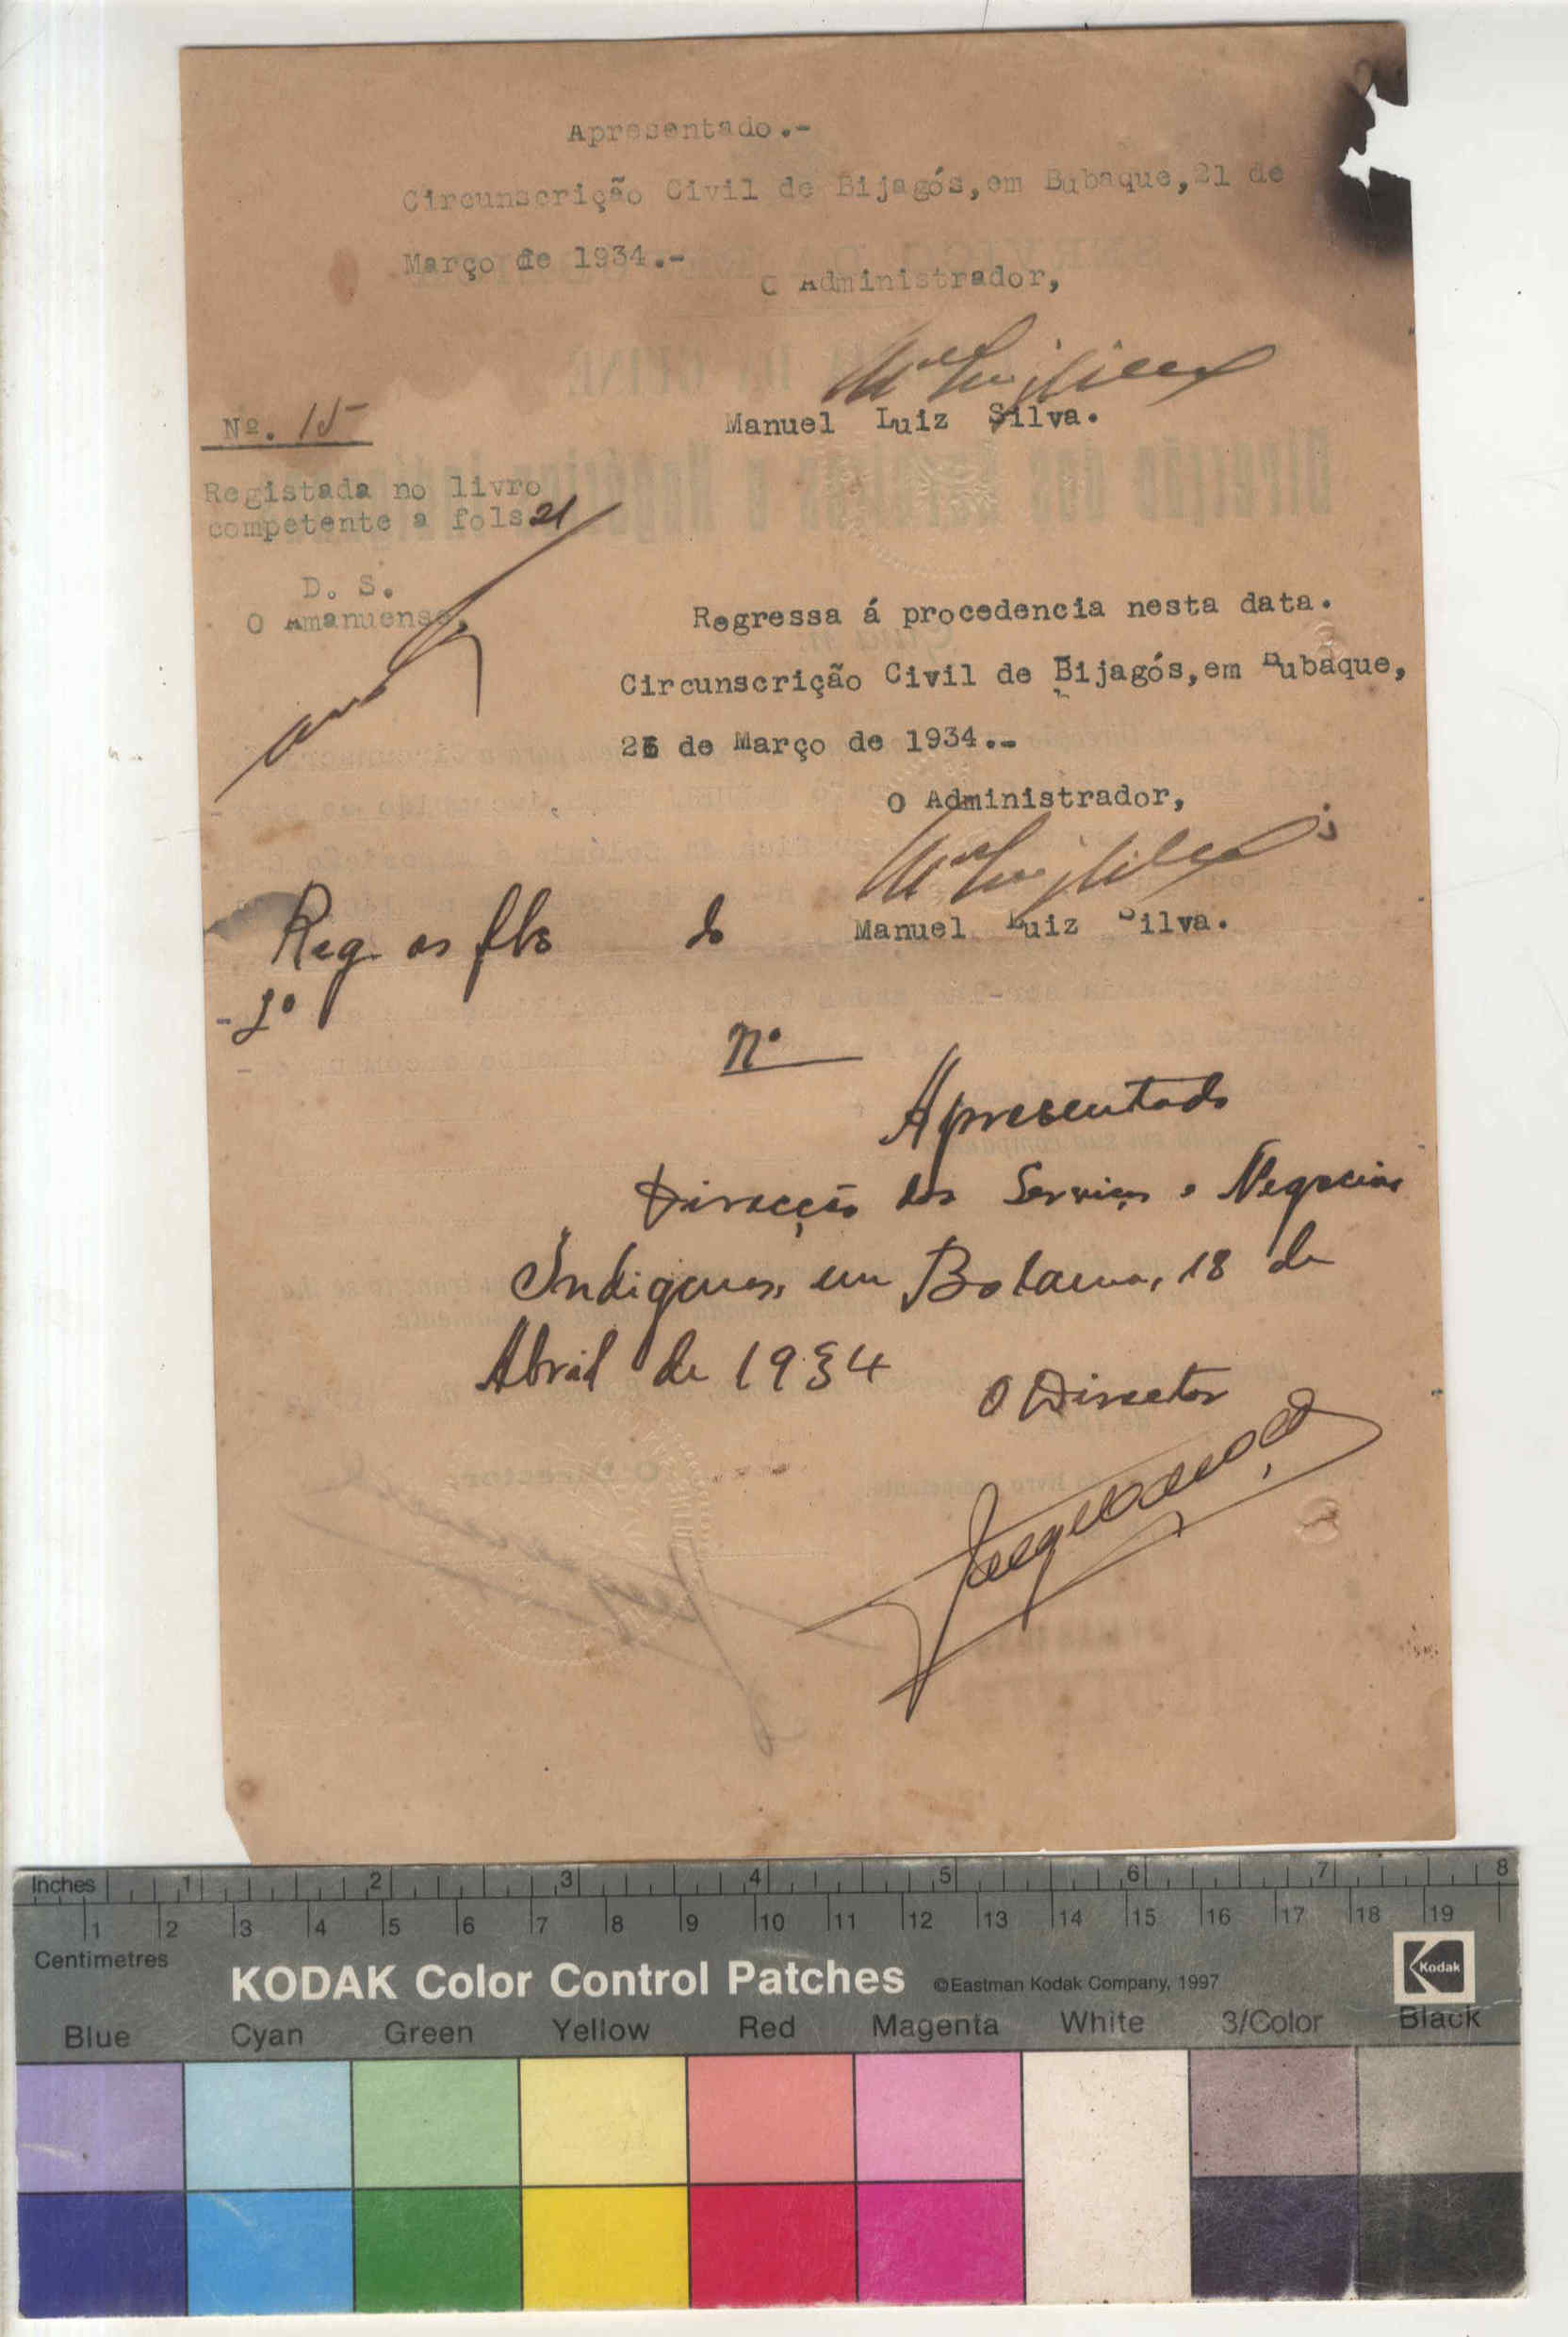 Apresentado.-
Circunscrição Civil de Bijagós,em Bubaque,21 de
Março de 1934.-
O Administrador,
Manuel Luiz Silva.
Nº. 15
Registada no livro
competente a fols 21
D. S.
O Amanuense,
Regressa á procedencia nesta data.
Circunscrição Civil de Bijagós,em Bubaque,
26 de Março de 1934.-
O Administrador,
Manuel Luiz Silva.
Reg. as fls do
Nº
Apresentado
Direcção dos Serviços e Negocios
Indigenas, em Bolama, 18 de
Abril de 1934
O Director
Inches 1 2 3 4 5 6 7 8
1 2 3 4 5 6 7 8 9 10 11 12 13 14 15 16 17 18 19
Centimetres
KODAK Color Control Patches ©Eastman Kodak Company, 1997 Kodak
Blue Cyan Green Yellow Red Magenta White 3/Color Black